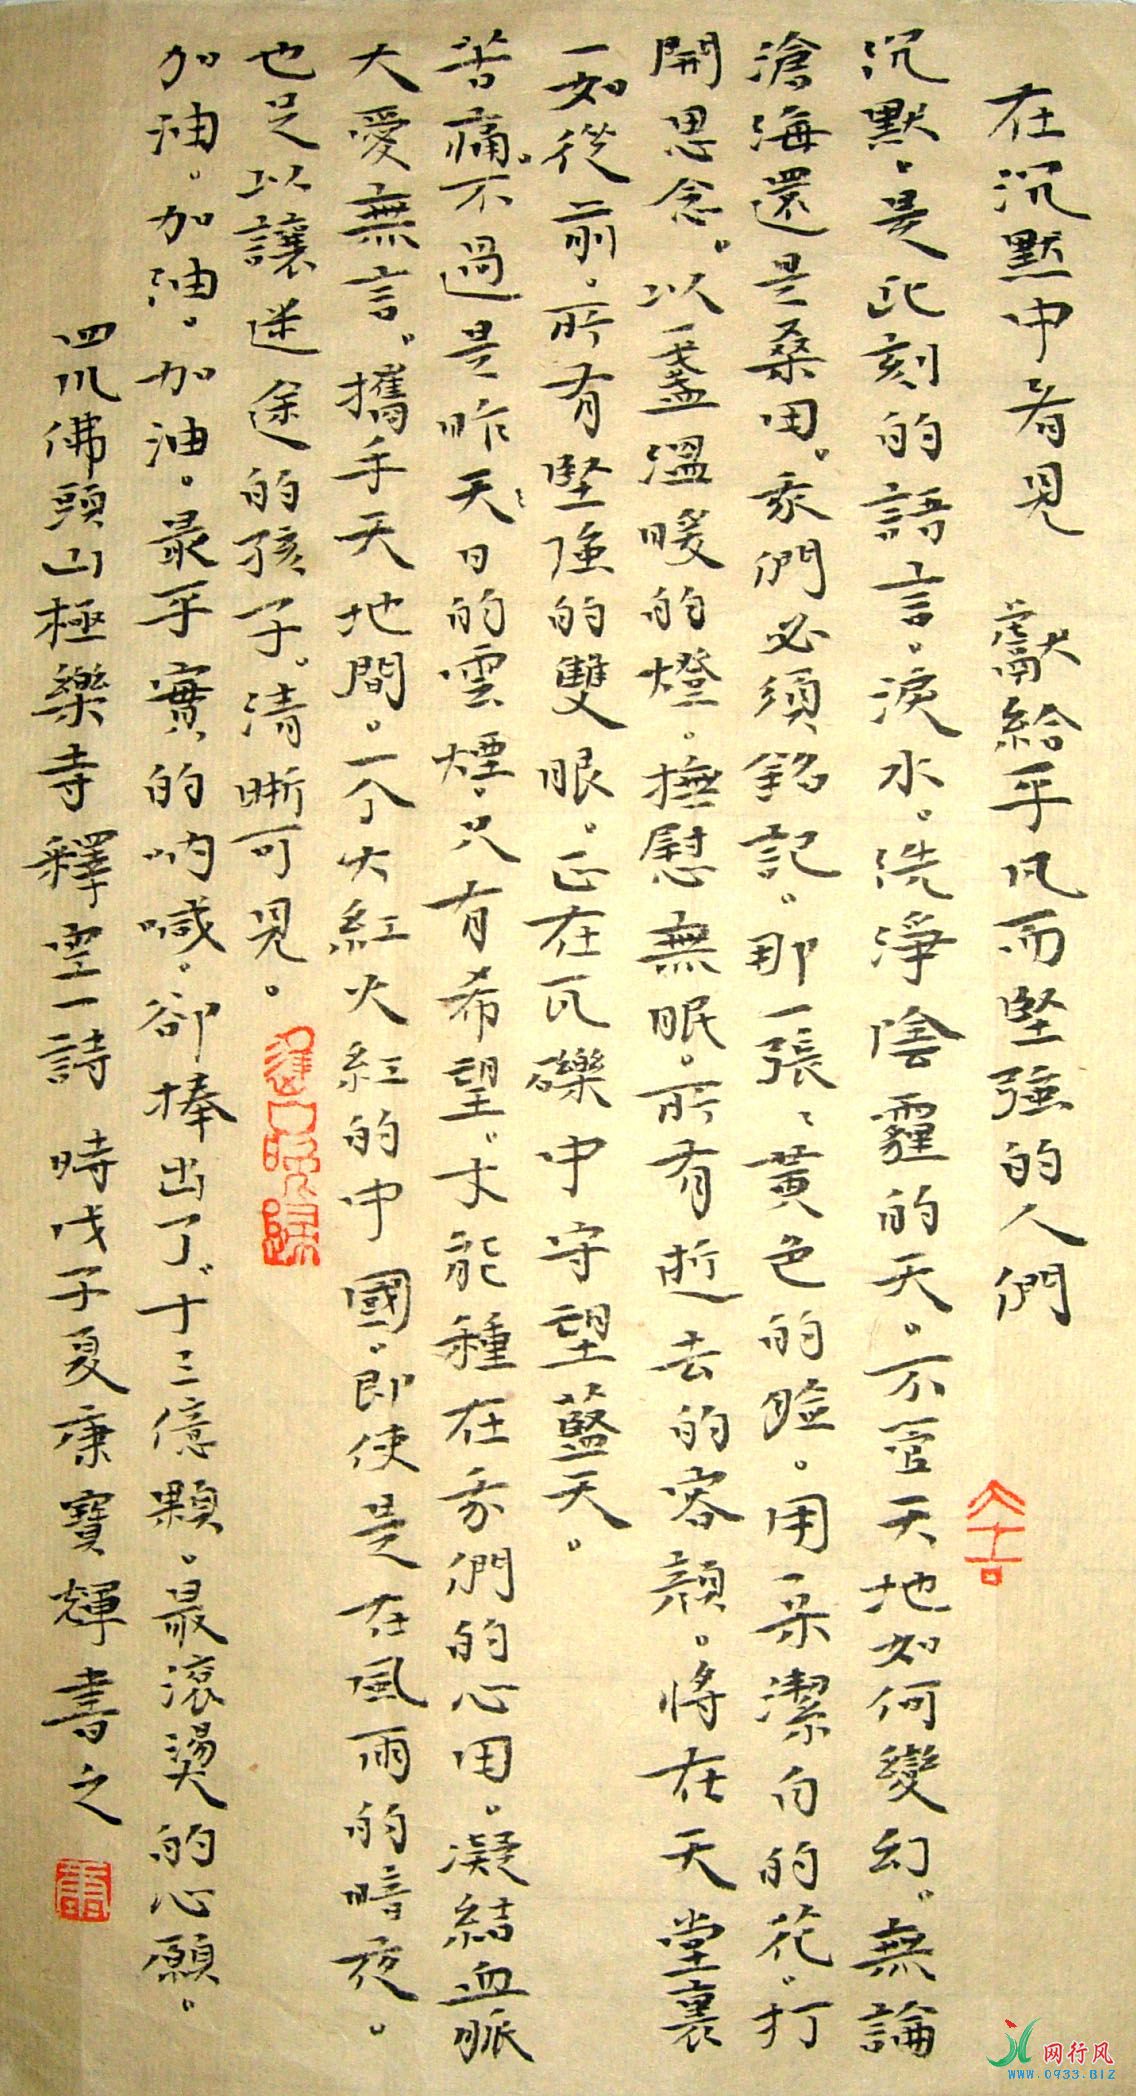 在沉默中看見　獻給平凡而堅強的人們
沉默。是此刻的語言。淚水。洗淨陰霾的天。不管天地如何變幻。無論
滄海還是桑田。我們必須銘記。那一張張黃色的臉。用一朵潔白的花。打
開思念。以一盞溫暖的燈。撫慰無眠。所有逝去的容顏。將在天堂裏
一如從前。所有堅強的雙眼。正在瓦礫中守望藍天。
苦痛。不過是昨天天日的雲煙。只有希望。才能種在我們的心田。凝結血脈
大愛無言。攜手天地間。一个大紅大紅的中國。即使是在風雨的暗夜。
也足以讓迷途的孩子。清晰可見。
加油。加油。加油。最平實的吶喊。卻捧出了。十三億顆。最滾燙的心願。
四川佛頭山極樂寺釋空一詩　時戊子夏康寶輝書之
网行风
www.0933.BIZ